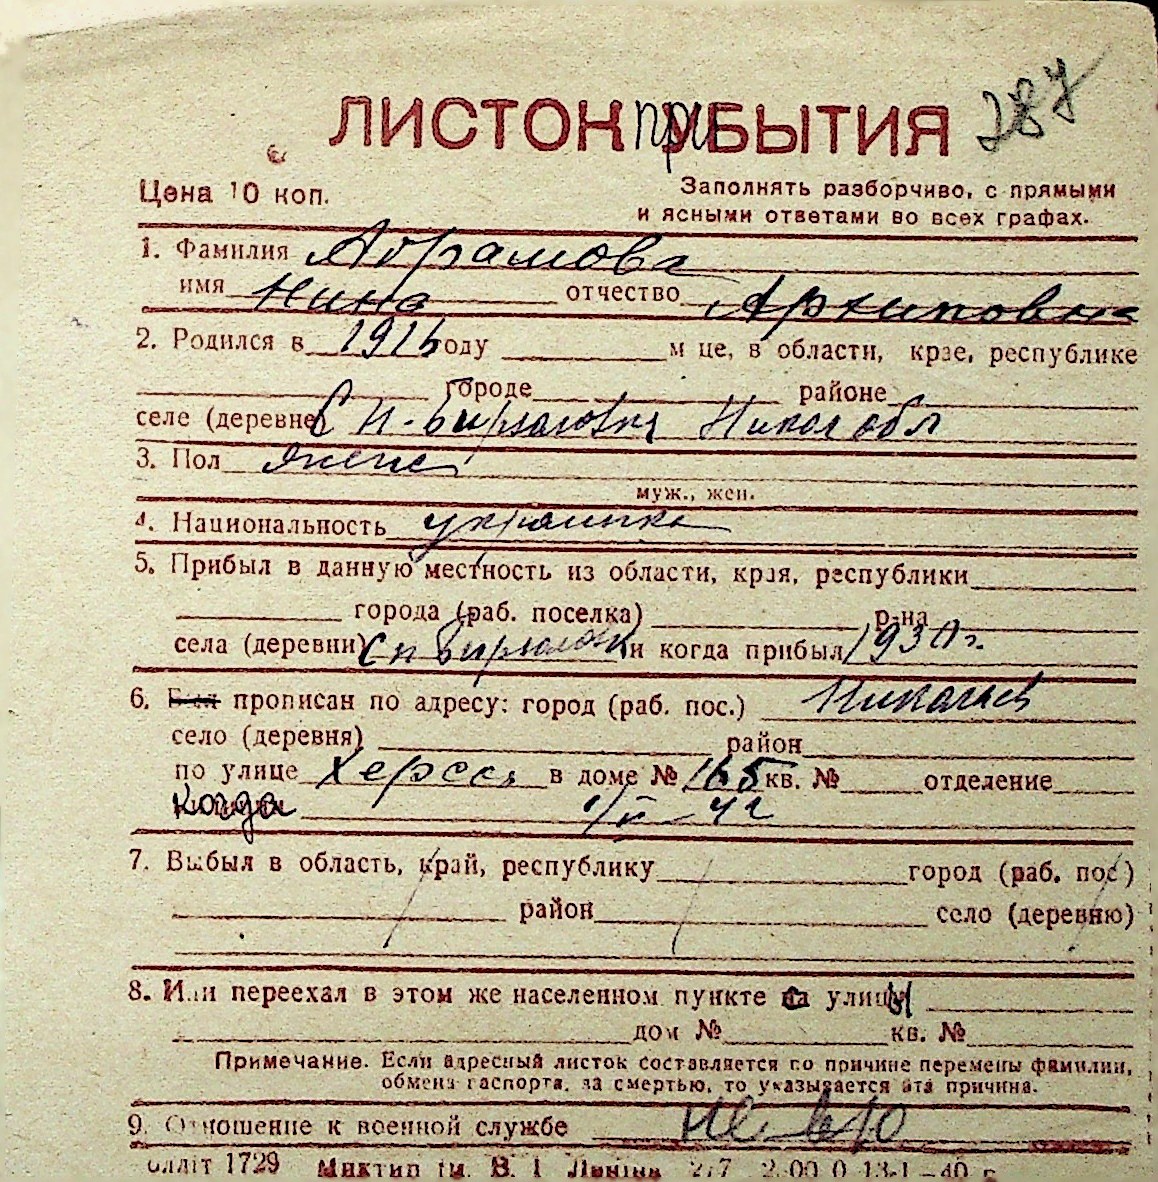 ЛИСТОК приБЫТИЯ 287
Цена 10 коп.
Заполнять разборчиво, с прямыми
и ясными ответами во всех графах.
1. Фамилия Абрамова
имя Нина отчество Архиповна
2. Родился в 1916 году м-це, в области, крае, республике
городе районе
селе (деревне) С Н-Бирзаловка Никол обл
3. Пол женс
муж., жен.
4. Национальность украинка
5. Прибыл в данную местность из области, края, республики
города (раб. поселка) р-на
села (деревни) и когда прибыл 1930 г.
6. Был прописан по адресу: город (раб. пос.) Николаев
село (деревня) район
по улице Херсон в доме № 165 кв. № отделение
когда
7. Выбыл в область, край, республику город (раб. пос.)
район село (деревню)
8. Или переехал в этом же населенном пункте са улицы
дом № кв. №
Примечание. Если адресный листок составляется по причине перемены фамилии,
обмена паспорта, за смертью, то указывается эта причина.
9. Отношение к военной службе не в/о
олліт 1729 Миктип ім. В. І. Леніна 13-I-40 г.